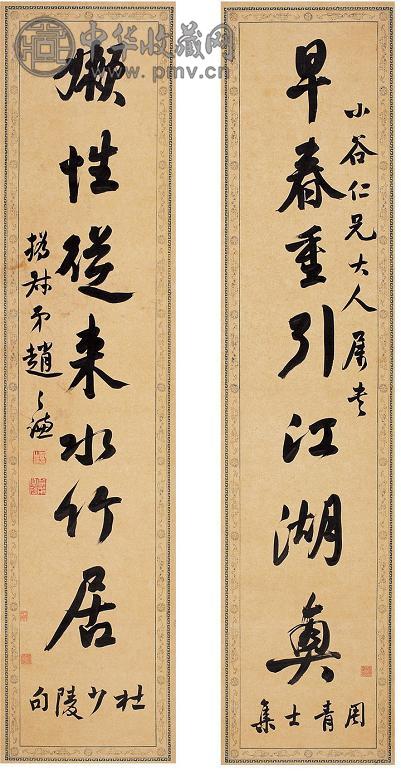 中华收藏网
www.pmv.cn
小谷仁兄大人屬書
早春重引江湖興
周青士集
嬾性從来水竹居
杜少陵句
撝叔弟趙之謙